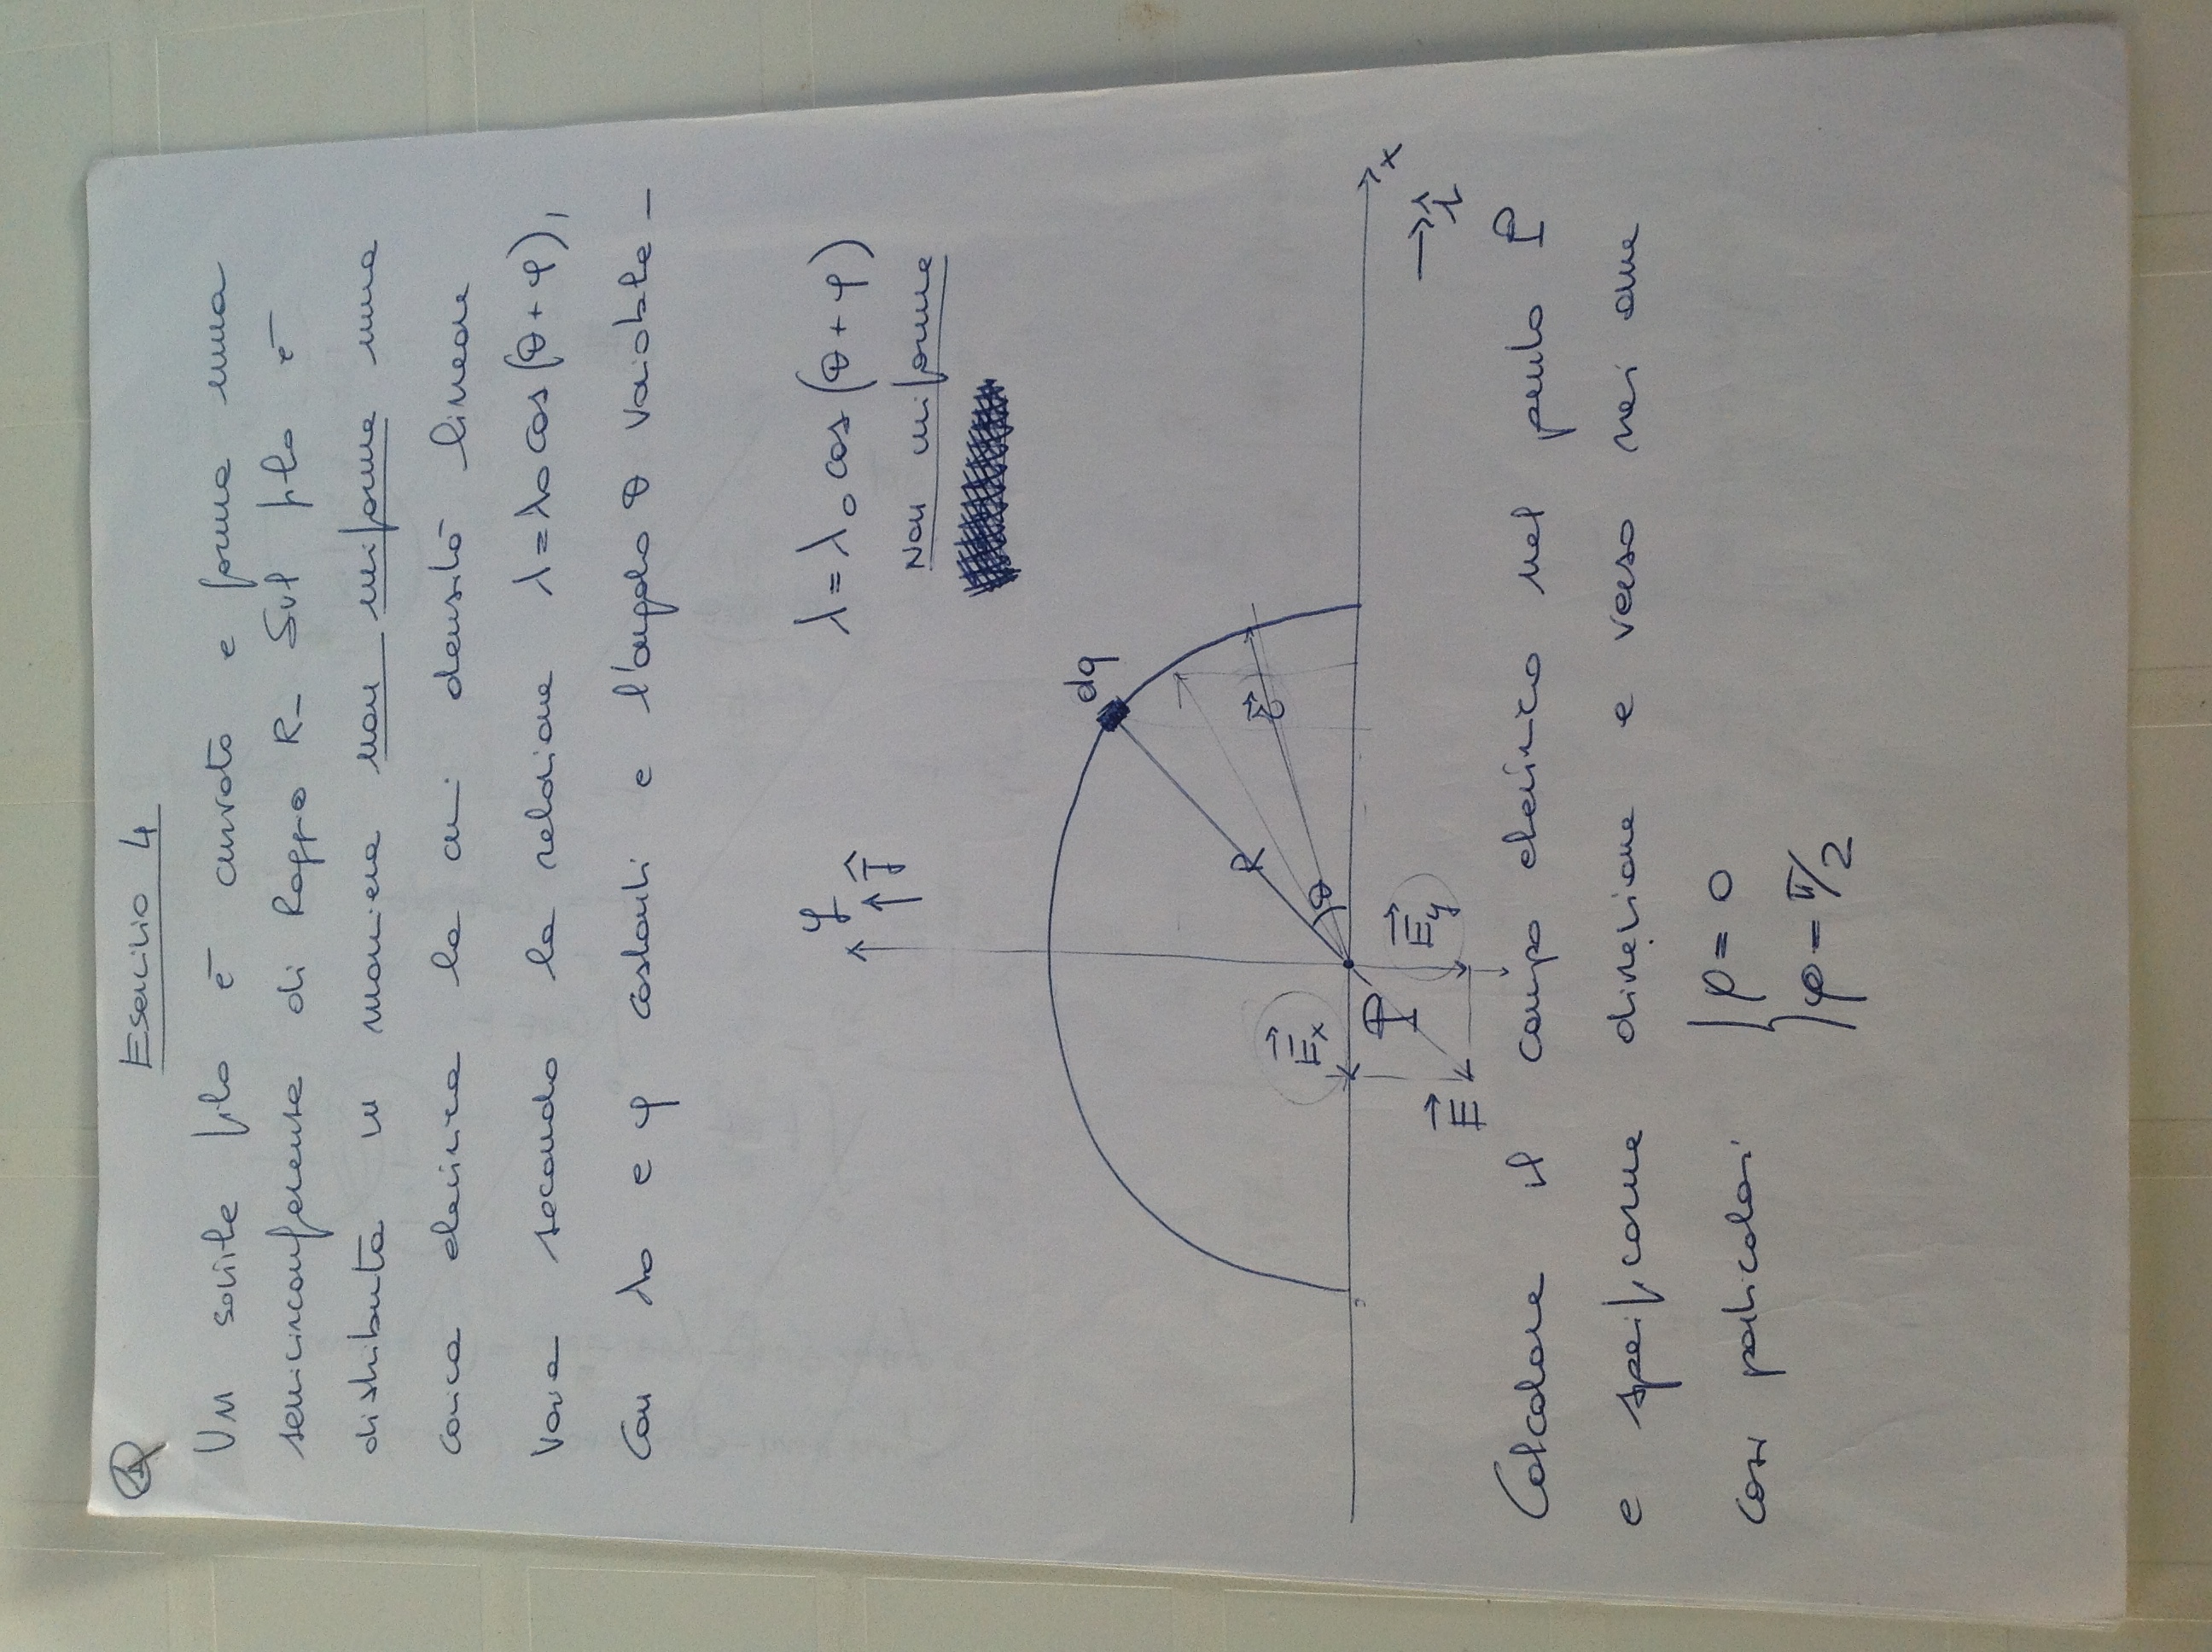 1
Esercizio 4
Un sottile filo è curvato e forma una
semicirconferenza di Raggio R_ Sul filo è
distribuita in maniera non uniforme una
carica elettrica la cui densità lineare
varia secondo la relazione λ=λ0 cos(θ+φ),
con λ0 e φ costanti e l'angolo θ variabile_
y
ĵ
λ=λ0 cos(θ+φ)
Non uniforme
dq
R
r
θ
Ex
P
Ey
E
x
î
Calcolare il campo elettrico nel punto P
e specificarne direzione e verso nei due
casi particolari { φ= 0
φ= π/2